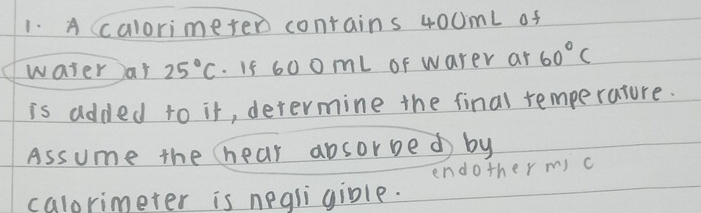 1. A calorimeter contains 400mL of
water at 25°C. If 600mL of water at 60°C
is added to it, determine the final temperature.
Assume the heat absorbed by
endothermic
calorimeter is negligible.